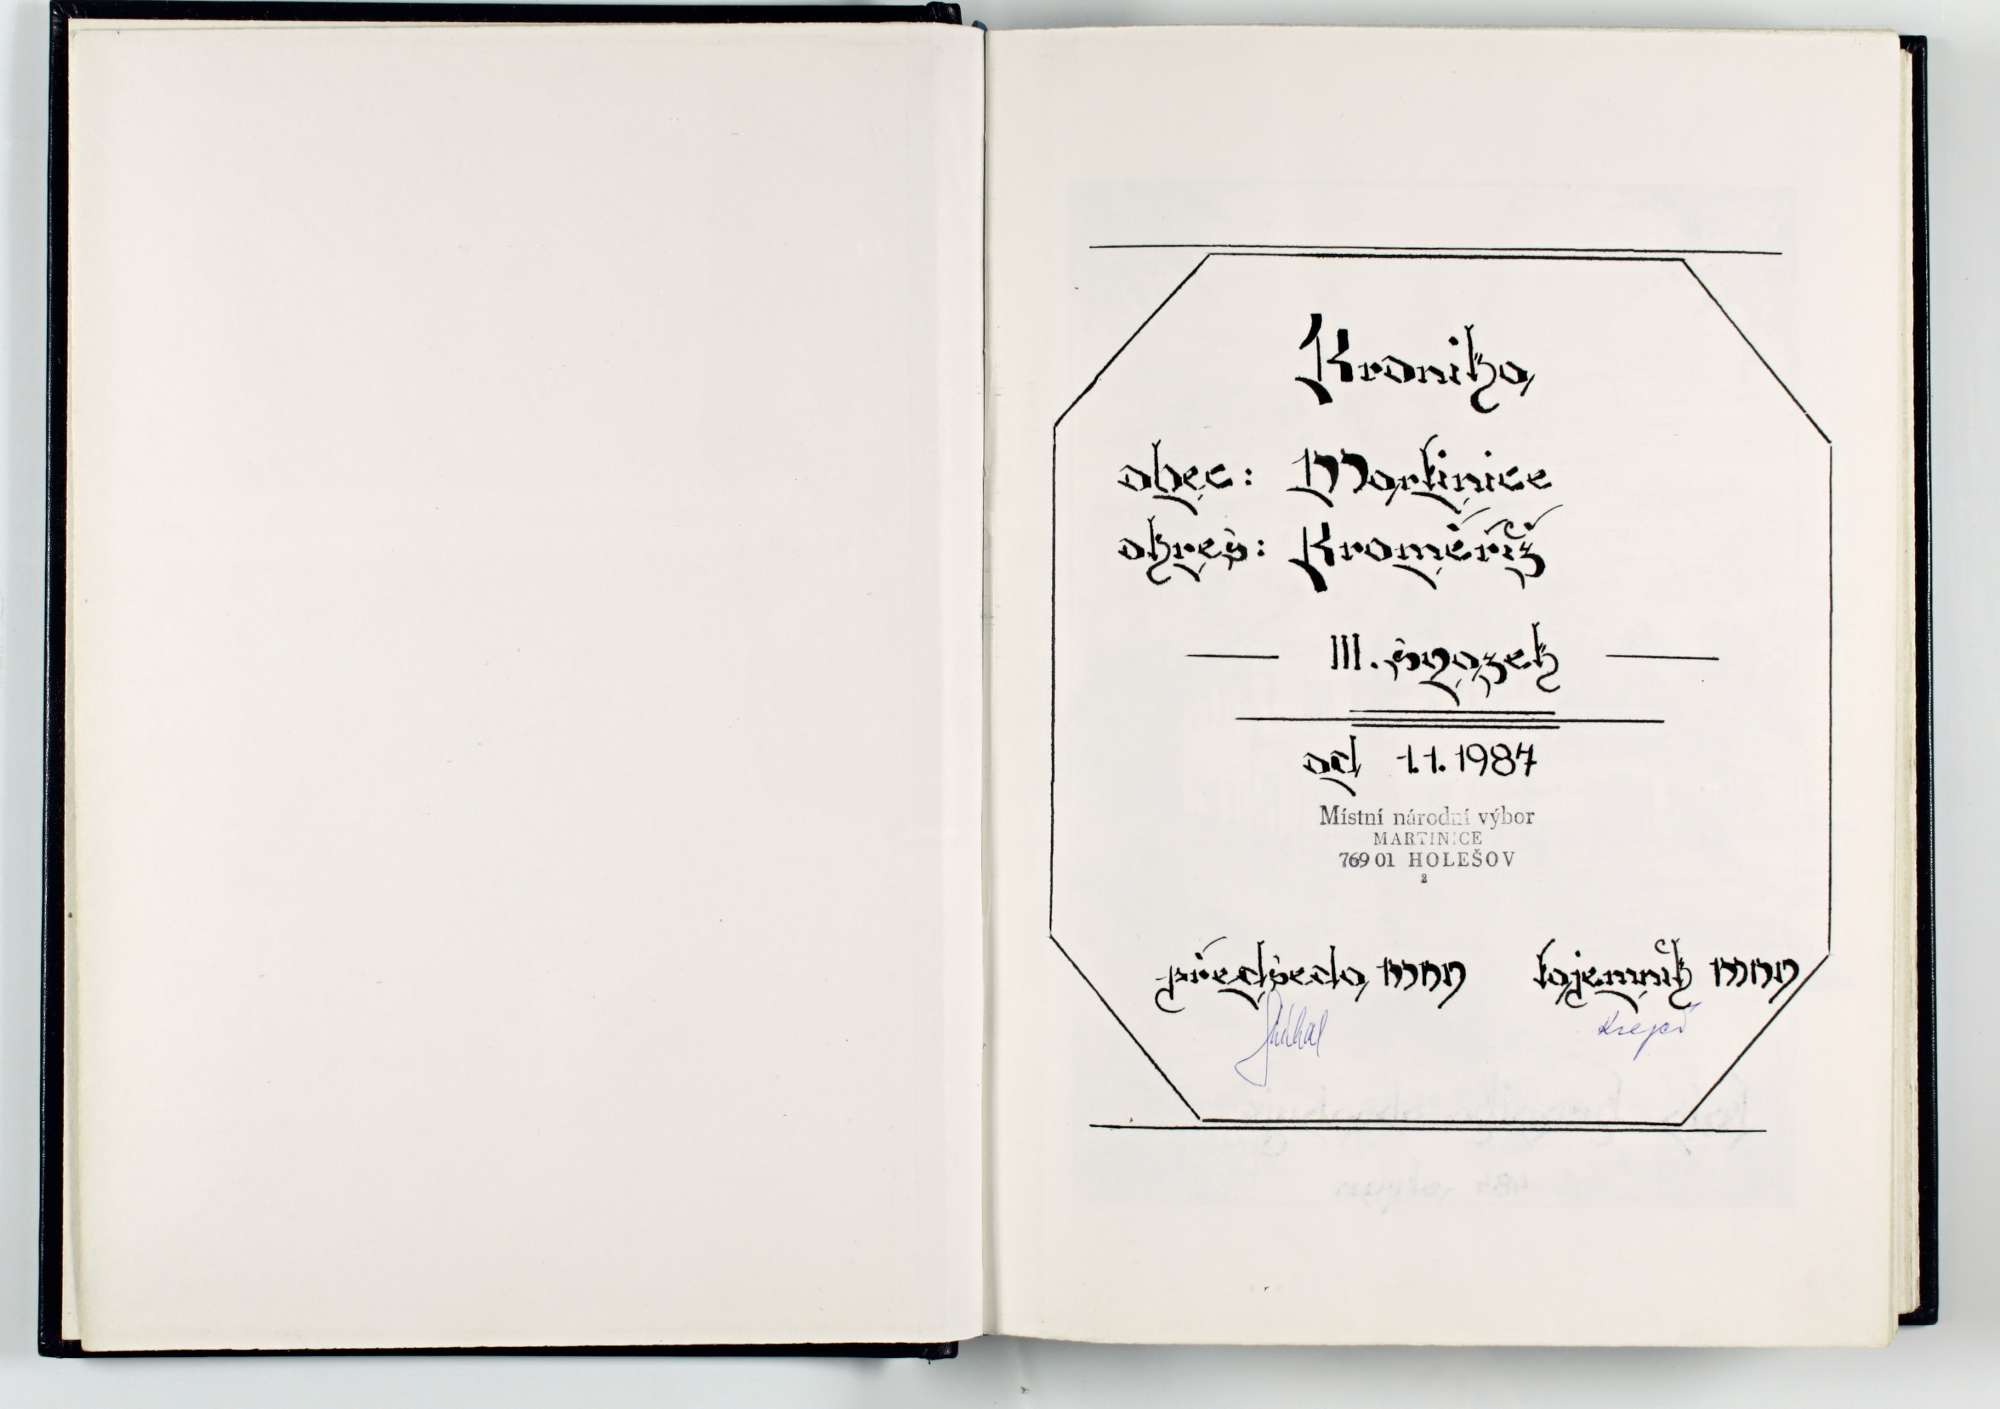 Kronika
obec: Martinice
okres: Kroměříž
III. svazek
od 1.1.1987
Místní národní výbor
MARTINICE
769 01 HOLEŠOV
2
předseda MNV tajemník MNV
Krejčí